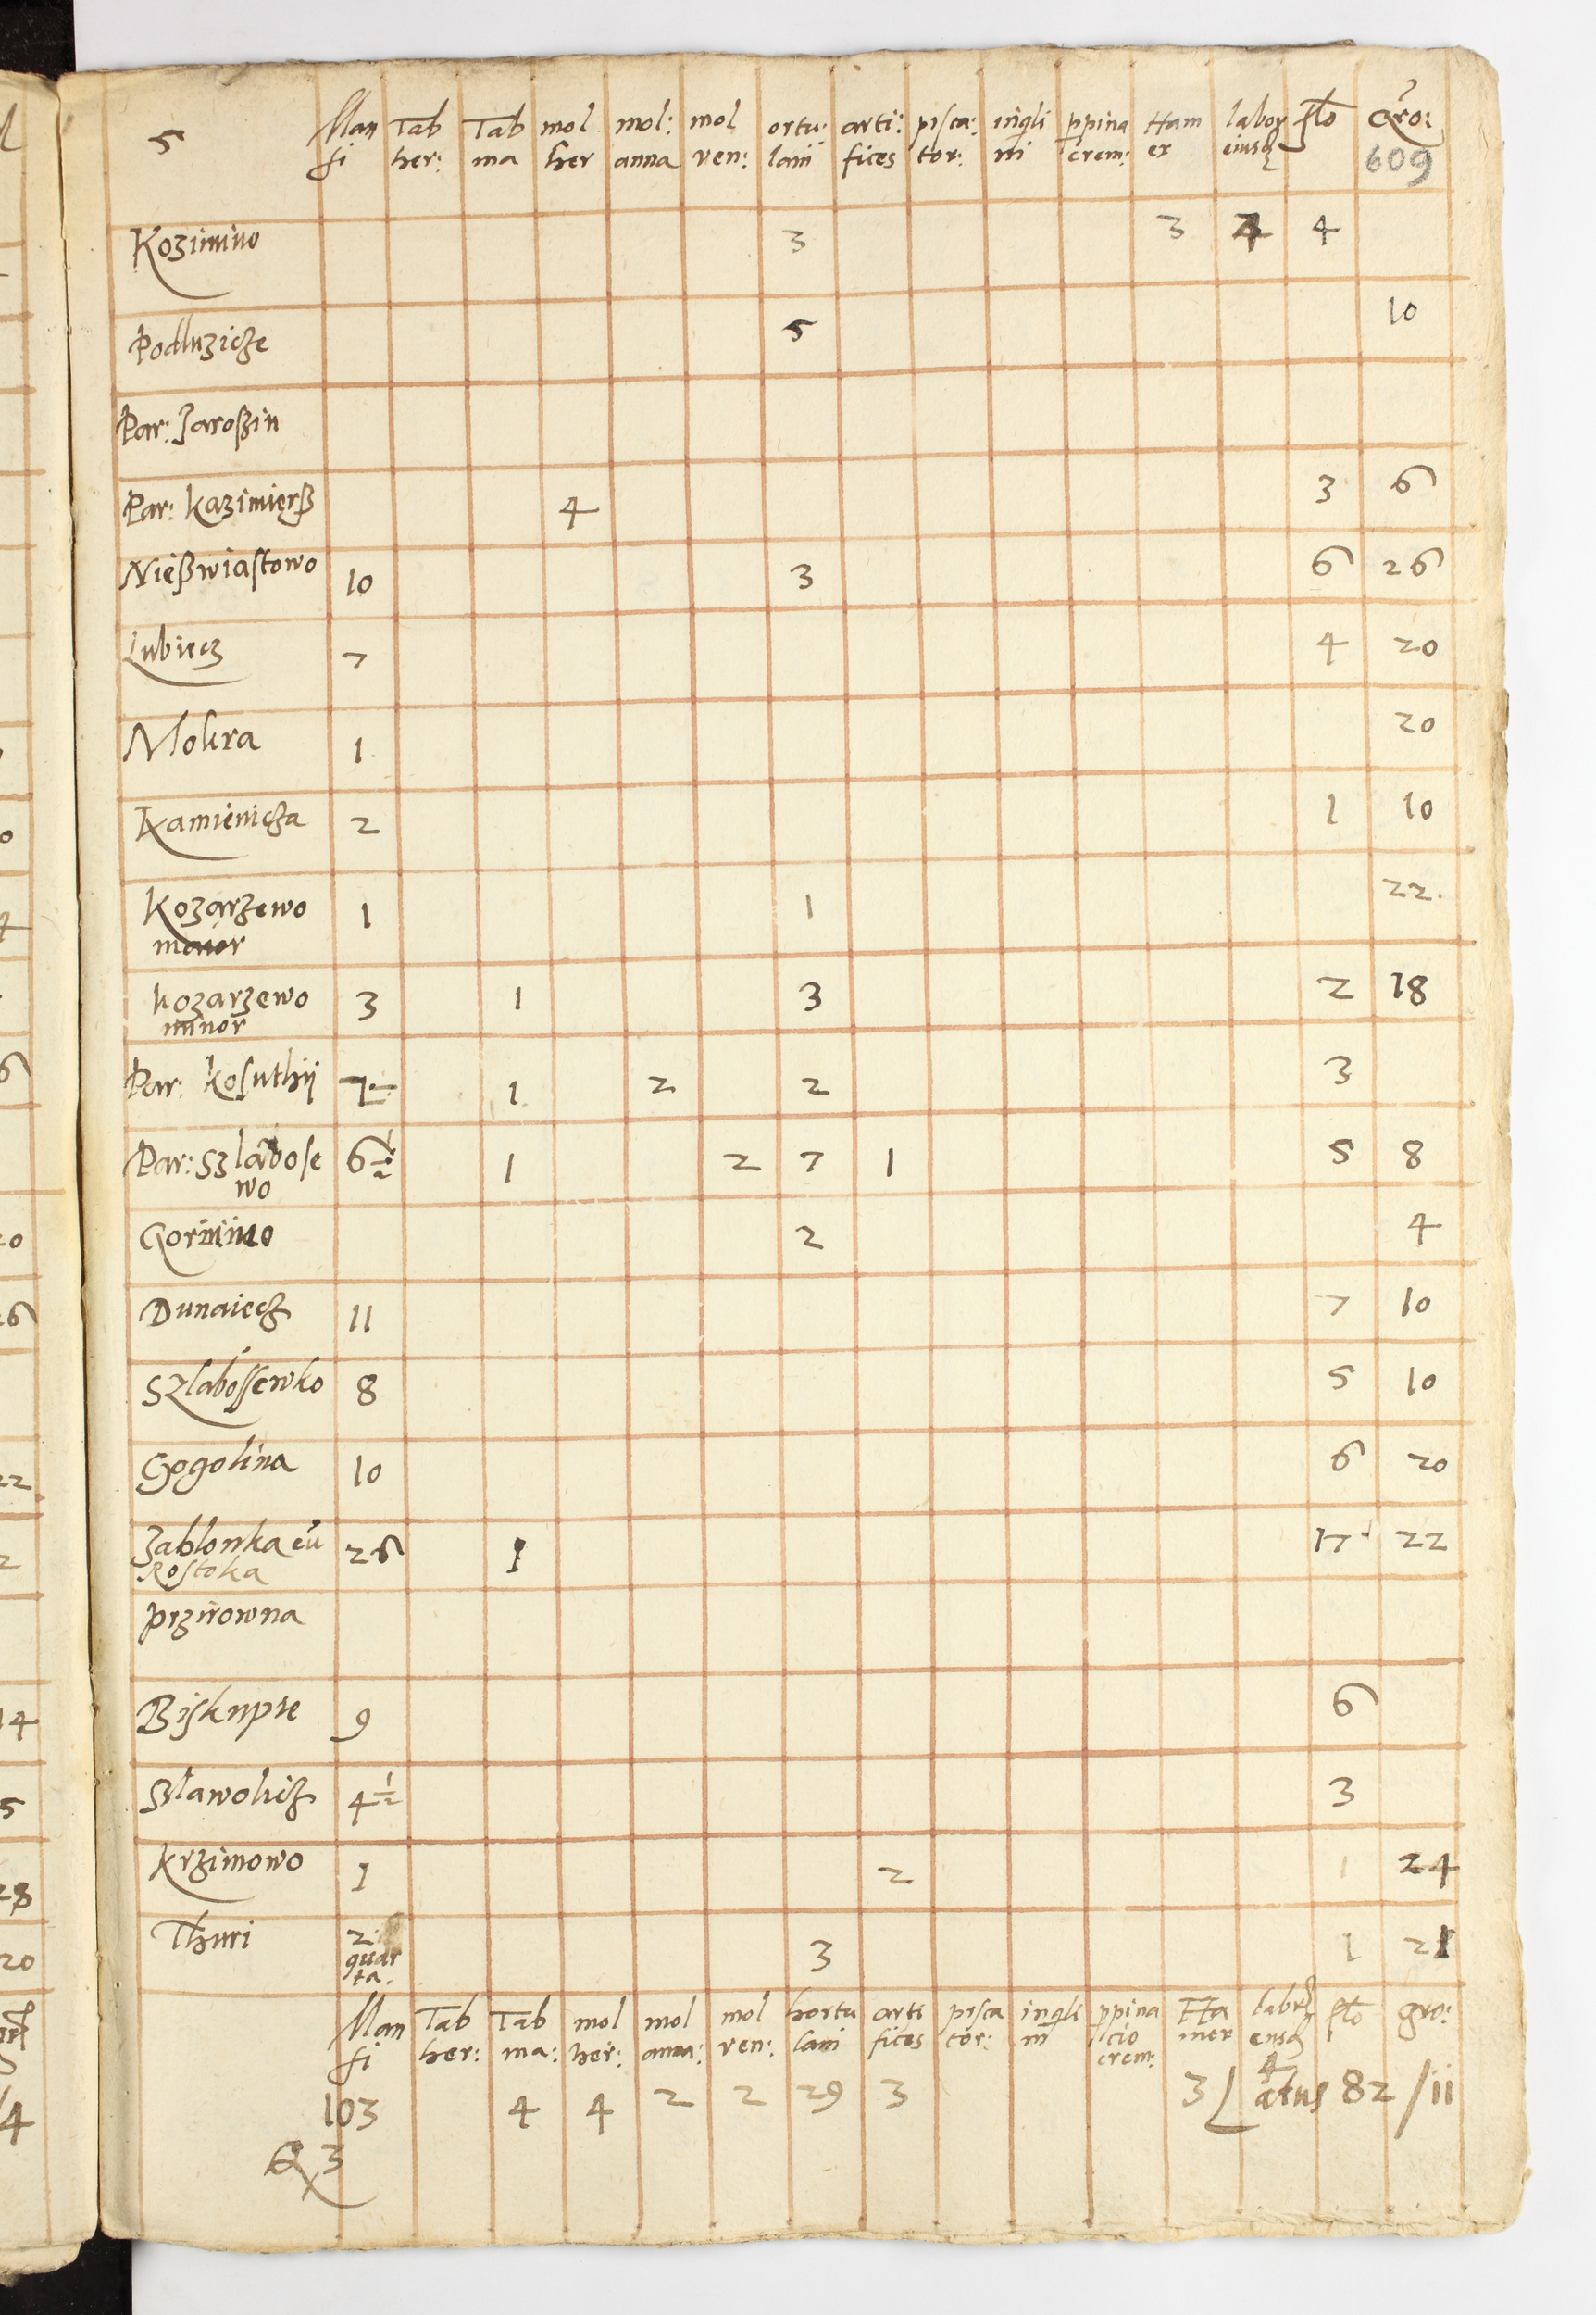 5 Man Tab Tab mol mol: mol ortu: arti: pisca: inqli ppina Ham labor flo Gro:
si her: ma her anna ven: lani fices tor: ni crem: er eiusq 609
Kozimino 3 3 4 4
Podluzicze 5 10
Par: Jaroszin
Par: kazimierß 4 3 6
Nießwiastowo 10 3 6 26
Lubiecz 7 4 20
Mokra 1 20
Kamienicza 2 1 10
Kozarzewo 1 1 22.
maior
kozarzewo 3 1 3 2 18
minor
Par: kosuthij 1 2 2 3
Par: Szlabose 6 1/2 1 2 7 1 5 8
wo
Gorinino 2 4
Dunaiecz 11 7 10
Szlabossewko 8 5 10
Gogolina 10 6 20
Jablonka cu 26 1 17 22
Rostoka
przirowna
Biskupie 9 6
Szlawolicz 4 1/2 3
krzimowo 1 2 1 24
Thuri 2 3 1 21
quar
ta.
Man Tab Tab mol mol mol hortu arti pisca inqli ppina Ha labor flo gro:
si her: ma: her: anna: ven: lani fices tor: ni cio mer eiusq
crem: 4
103 4 4 2 2 29 3 3 Latus 82 / ii
Q 3